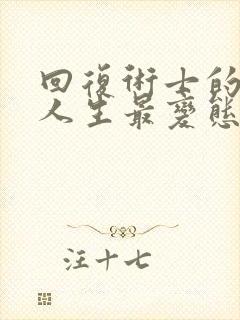 回復術士的
人生最變態
汪十七